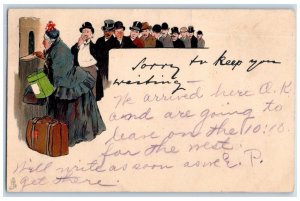 Sorry to keep you
waiting -
We arrived here O.K
and are going to
leave on the 10:10
for the west.
We'll write as soon as we E. P.
get there.